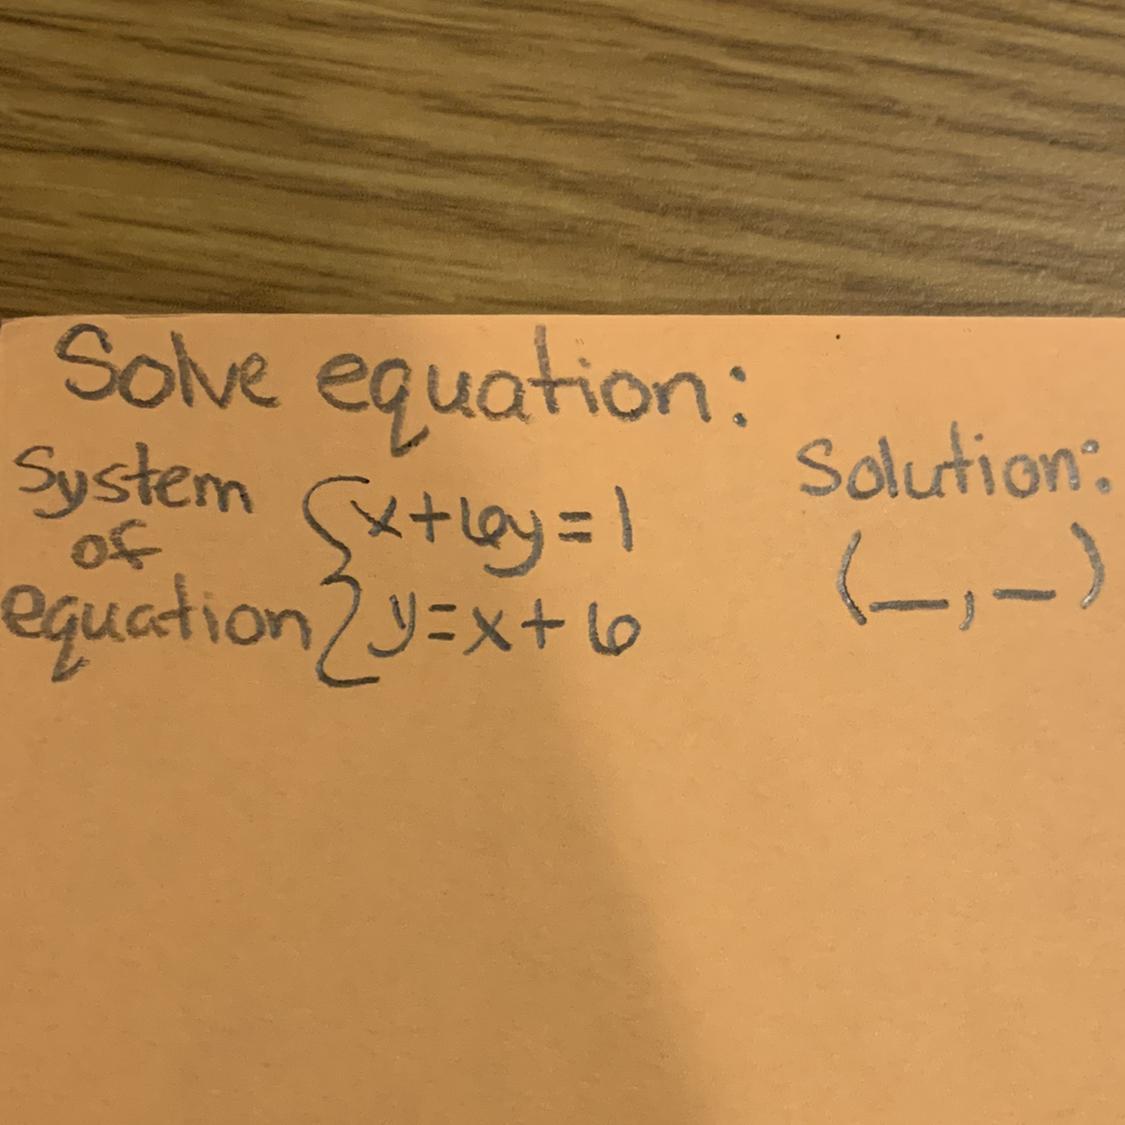 Solve equation:
System
of
equation
x+6y=1
y=x+6
Solution:
(_,_)